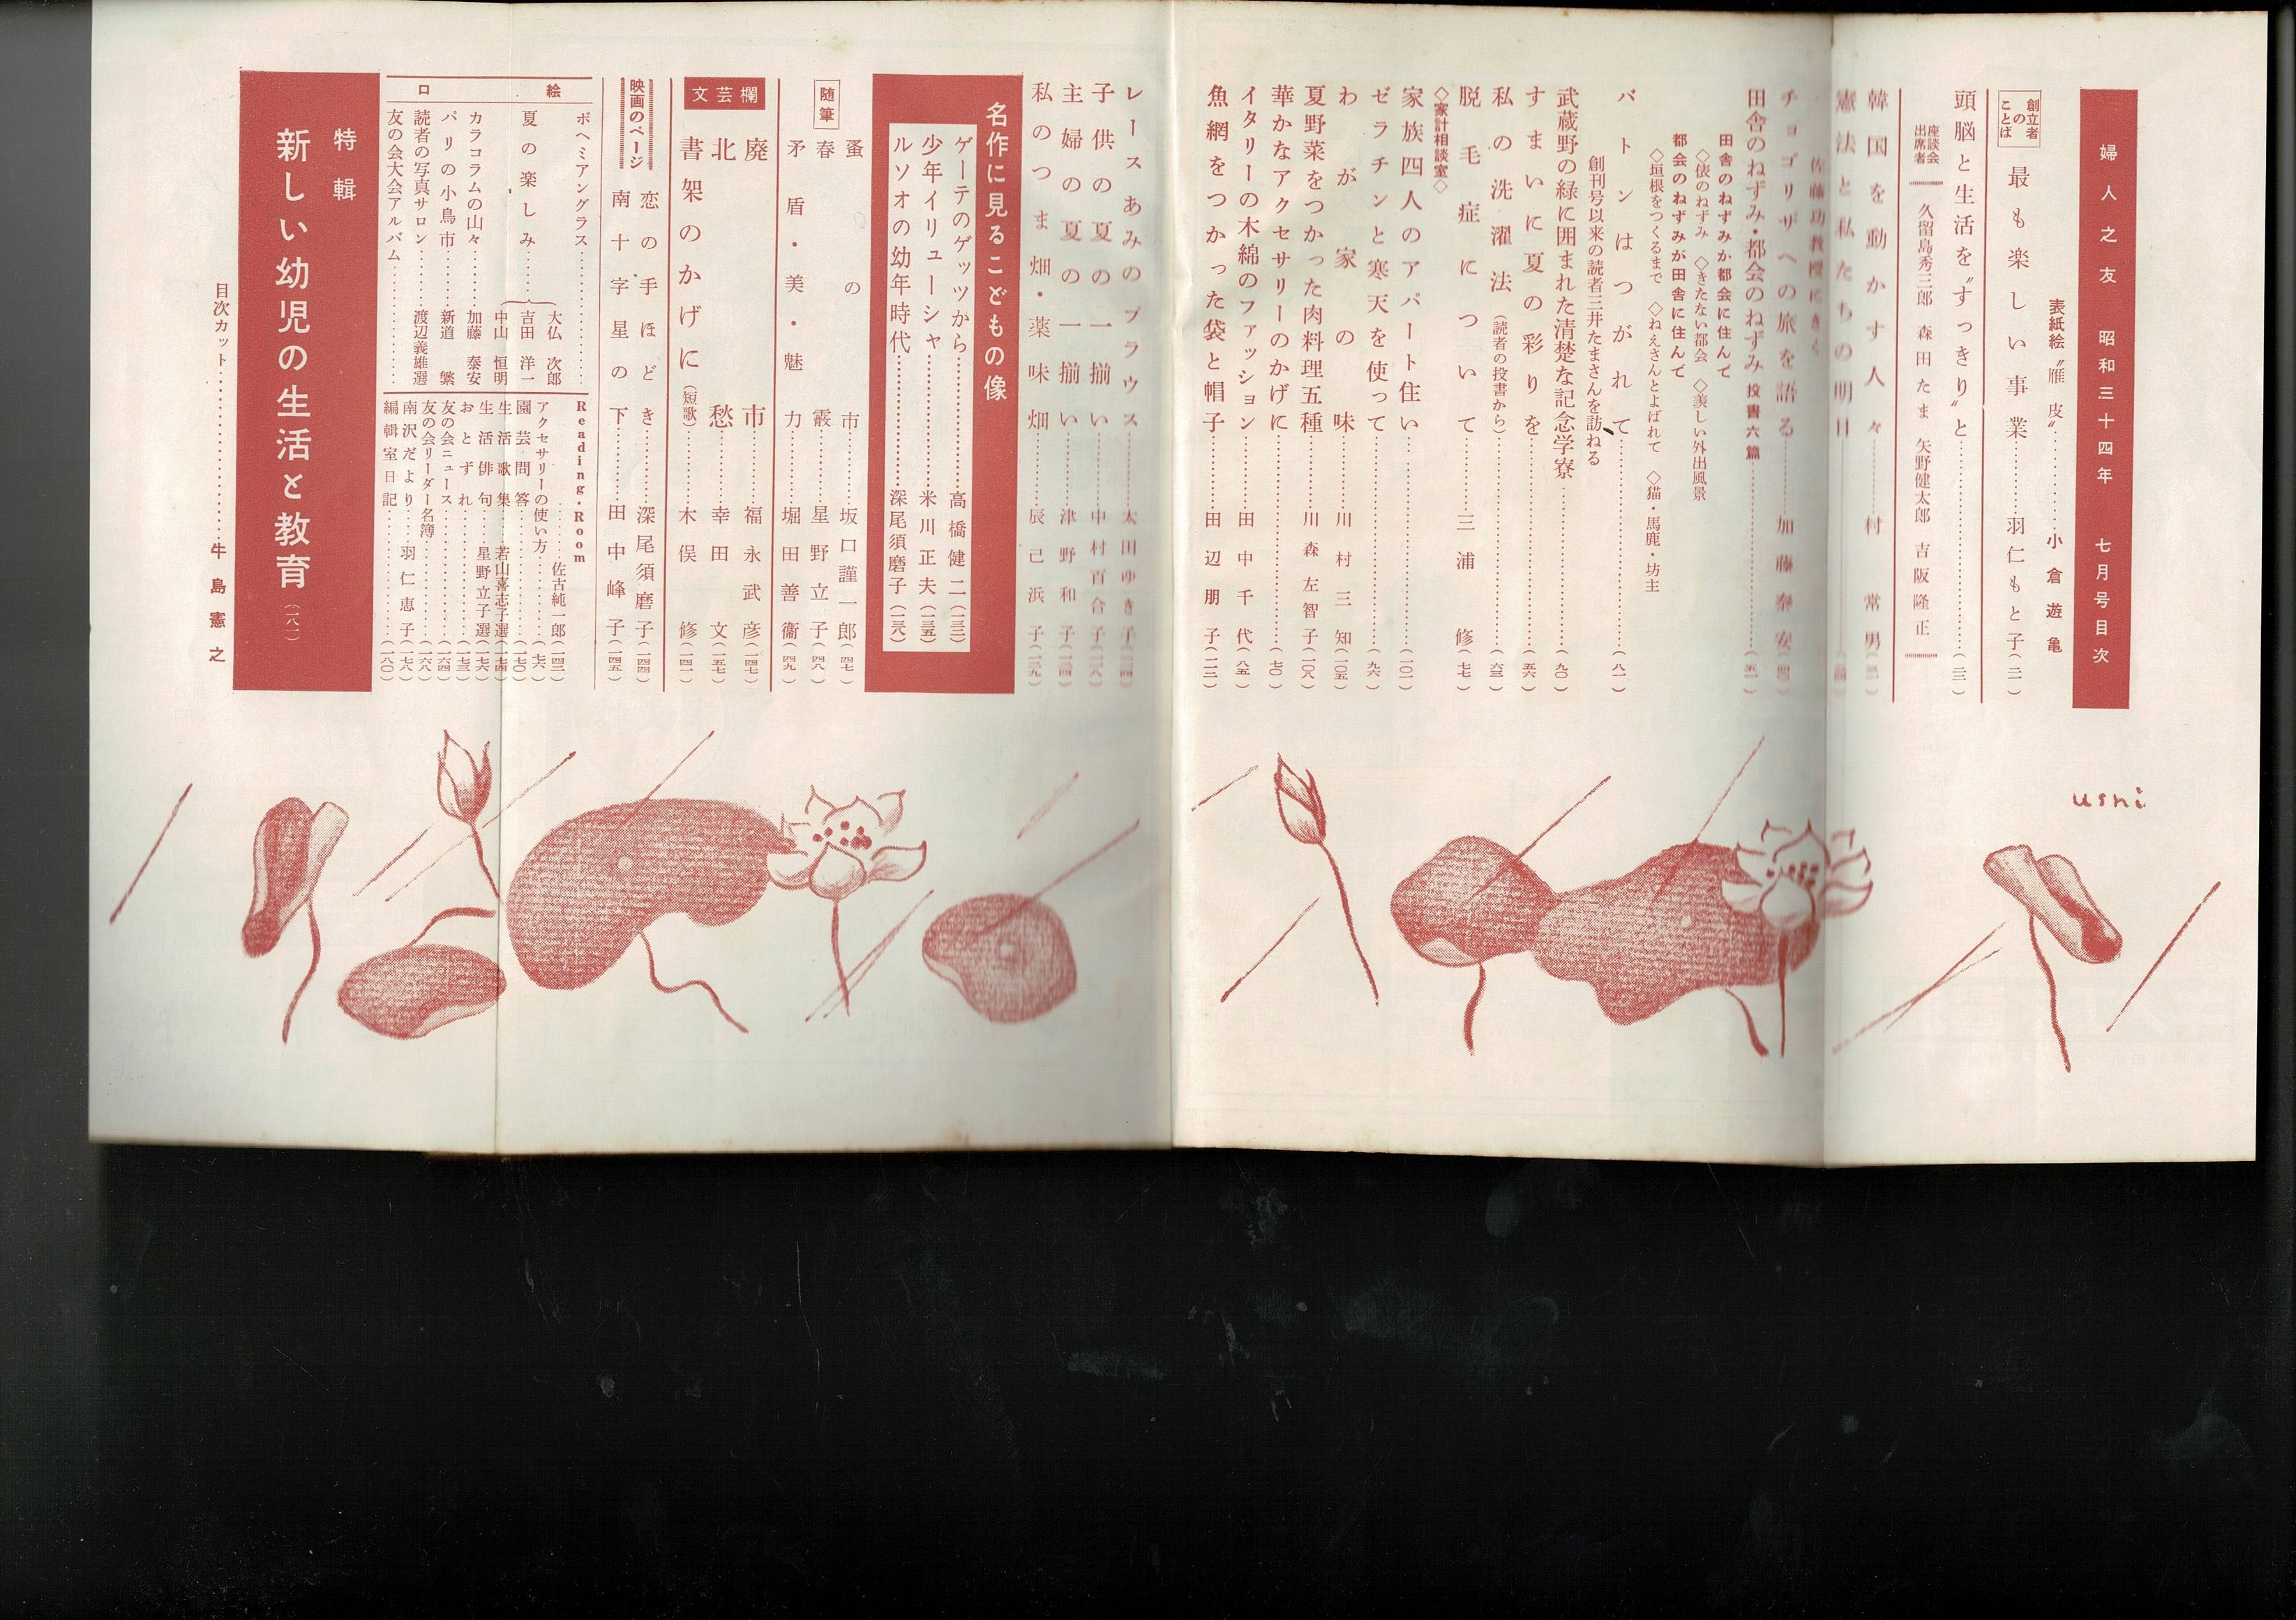 婦人之友　昭和三十四年　七月号目次
表紙絵〝雁皮〟………小倉遊亀
創立者のことば
最も楽しい事業………羽仁もと子（二）
頭脳と生活を〝すっきり〟と………（一二）
座談会出席者
久留島秀三郎　森田たま　矢野健太郎　吉阪隆正
韓国を動かす人々………村常男
憲法と私たちの明日
佐藤功教授にきく
チョゴリザへの旅を語る………加藤泰安
田舎のねずみ・都会のねずみ　投書六篇………
田舎のねずみが都会に住んで
◇俵のねずみ　◇きたない都会　◇美しい外出風景
都会のねずみが田舎に住んで
◇垣根をつくるまで　◇ねえさんとよばれて　◇猫・馬鹿・坊主
バトンはつがれて………（八一）
創刊号以来の読者三井たまさんを訪ねる
武蔵野の緑に囲まれた清楚な記念学寮………（九〇）
すまいに夏の彩りを………（五六）
私の洗濯法（読者の投書から）………（六三）
脱毛症について………三浦修（七七）
◇家計相談室◇
家族四人のアパート住い………（一〇一）
ゼラチンと寒天を使って………（九六）
わが家の味………川村三知（一〇五）
夏野菜をつかった肉料理五種………川森左智子（一〇八）
華かなアクセサリーのかげに………（七〇）
イタリーの木綿のファッション………田中千代（八五）
魚網をつかった袋と帽子………田辺朋子（一二二）
レースあみのブラウス………太田ゆき子
子供の夏の一揃い………中村百合子
主婦の夏の一揃い………津野和子
私のつま畑・薬味畑………辰己浜子（一二九）
名作に見るこどもの像
ゲーテのゲッツから………高橋健二（一三三）
少年イリューシャ………米川正夫（一三五）
ルソオの幼年時代………深尾須磨子（一三八）
随筆
蚤の市………坂口謹一郎（四七）
春霰………星野立子（四八）
矛盾・美・魅力………堀田善衞（四九）
文芸欄
廃市………福永武彦（一四七）
北愁………幸田文（一五七）
書架のかげに（短歌）………木俣修（一四一）
映画のページ
恋の手ほどき………深尾須磨子（一四四）
南十字星の下………田中峰子（一四五）
口絵
ボヘミアングラス………
夏の楽しみ………大仏次郎　吉田洋一　中山恒明
カラコラムの山々………加藤泰安
パリの小鳥市………新道繁
読者の写真サロン………渡辺義雄選
友の会大会アルバム………
Reading・Room
………佐古純一郎（一四二）
アクセサリーの使い方………（七六）
園芸問答………（一七〇）
生活歌集………若山喜志子選（一七四）
生活俳句………星野立子選（一七六）
おとずれ………（一七三）
友の会ニュース………（一六四）
友の会リーダー名簿………（一六八）
南沢だより………羽仁恵子（一七八）
編輯室日記………（一八〇）
特輯
新しい幼児の生活と教育（一八一）
目次カット………牛島憲之
ushi